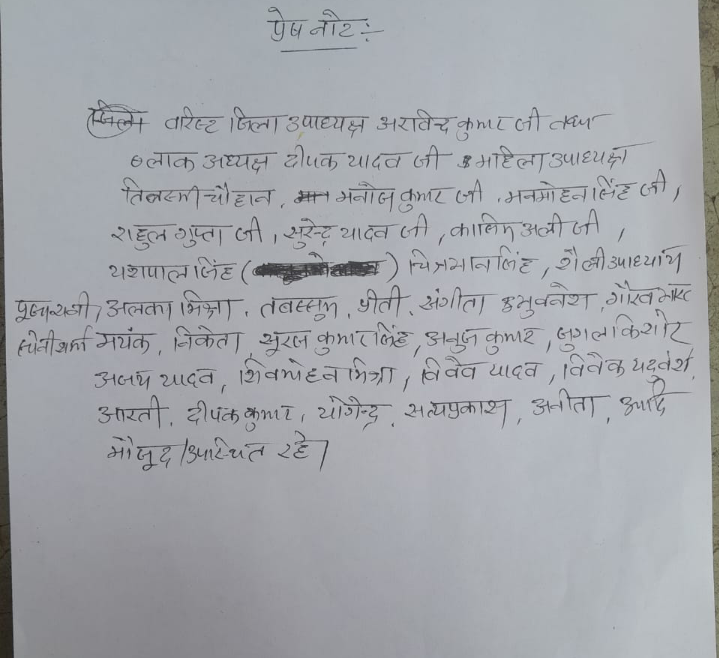 प्रेष नोट:-
वरिष्ट जिला उपाध्यक्ष अरविन्द कुमार जी तथा
ब्लाक अध्यक्ष दीपक यादव जी व महिला उपाध्यक्ष
चौहान, मनोज कुमार जी, मनमोहन सिंह जी,
राहुल गुप्ता जी, सुरेन्द्र यादव जी, कासिम अली जी,
यशपाल सिंह ( ) चित्रभान सिंह, शैली उपाध्याय
अलका मिश्रा, तबस्सुम, प्रीती, संगीता भुवनेश, गौरव
मयंक, निकेता, सूरज कुमार सिंह, अनुज कुमार, जुगल किशोर
अजय यादव, शिवमोहन मिश्रा, विवेव यादव, विवेक यदुवंश,
आरती, दीपक कुमार, योगेन्द्र, सत्यप्रकाश, अनीता, आदि
मौजूद/उपस्थित रहे।